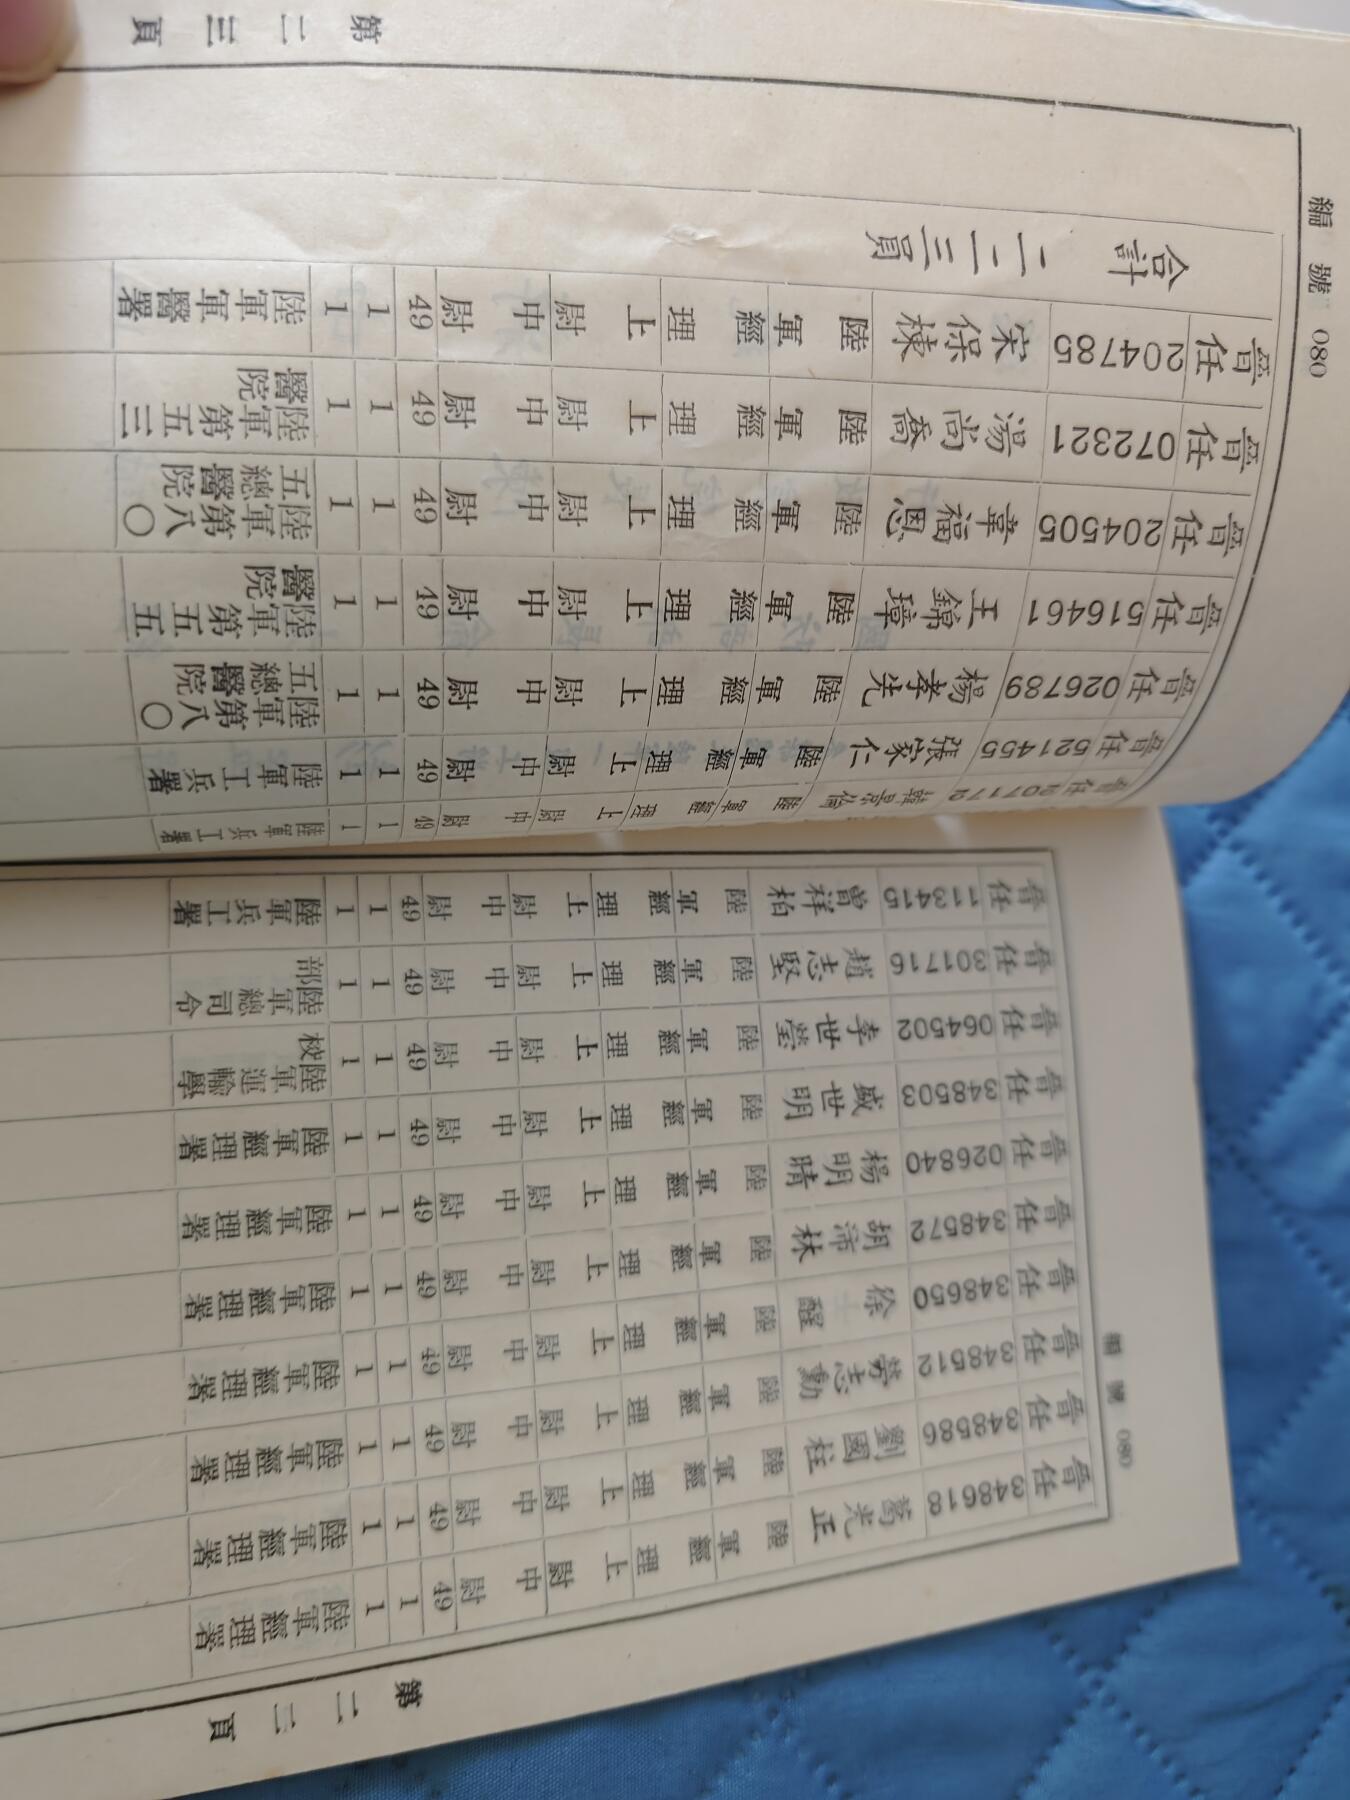 編號 080
第二二頁
晉任 348618 葛光正 陸軍經理上尉 中尉 49 1 1 陸軍經理署
晉任 348586 劉國柱 陸軍經理上尉 中尉 49 1 1 陸軍經理署
晉任 348512 勞志勳 陸軍經理上尉 中尉 49 1 1 陸軍經理署
晉任 348650 徐醒 陸軍經理上尉 中尉 49 1 1 陸軍經理署
晉任 348572 胡沛林 陸軍經理上尉 中尉 49 1 1 陸軍經理署
晉任 026840 楊明晴 陸軍經理上尉 中尉 49 1 1 陸軍經理署
晉任 348503 盛世明 陸軍經理上尉 中尉 49 1 1 陸軍經理署
晉任 064502 李世瑩 陸軍經理上尉 中尉 49 1 1 陸軍運輸學校
晉任 301716 趙志堅 陸軍經理上尉 中尉 49 1 1 陸軍總司令部
晉任 113415 曾祥柏 陸軍經理上尉 中尉 49 1 1 陸軍兵工署
晉任 207172 韓景倫 陸軍經理上尉 中尉 49 1 1 陸軍兵工署
晉任 521455 張家仁 陸軍經理上尉 中尉 49 1 1 陸軍工兵署
晉任 026789 楊孝先 陸軍經理上尉 中尉 49 1 1 陸軍第八〇五總醫院
晉任 516461 王錦璋 陸軍經理上尉 中尉 49 1 1 陸軍第五五醫院
晉任 204505 韋福恩 陸軍經理上尉 中尉 49 1 1 陸軍第八〇五總醫院
晉任 072321 湯尚喬 陸軍經理上尉 中尉 49 1 1 陸軍第五三醫院
晉任 204785 宋保棟 陸軍經理上尉 中尉 49 1 1 陸軍軍醫署
合計 一一三員
編號 080
第二三頁